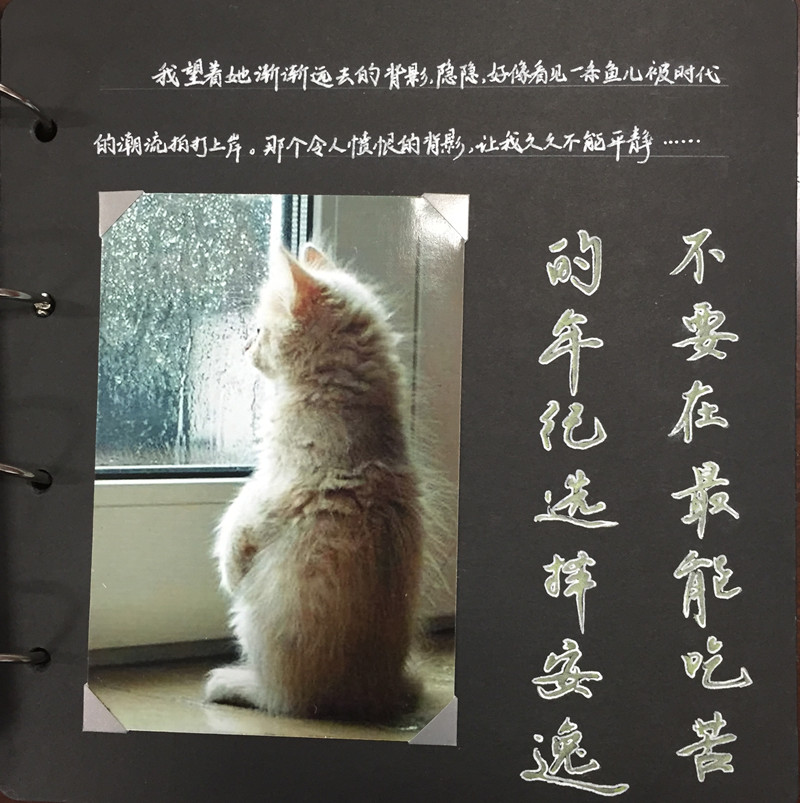 我望着她渐渐远去的背影,隐隐,好像看见一条鱼儿被时代
的潮流拍打上岸。那个令人愤恨的背影,让我久久不能平静……
不要在最能吃苦
的年纪选择安逸